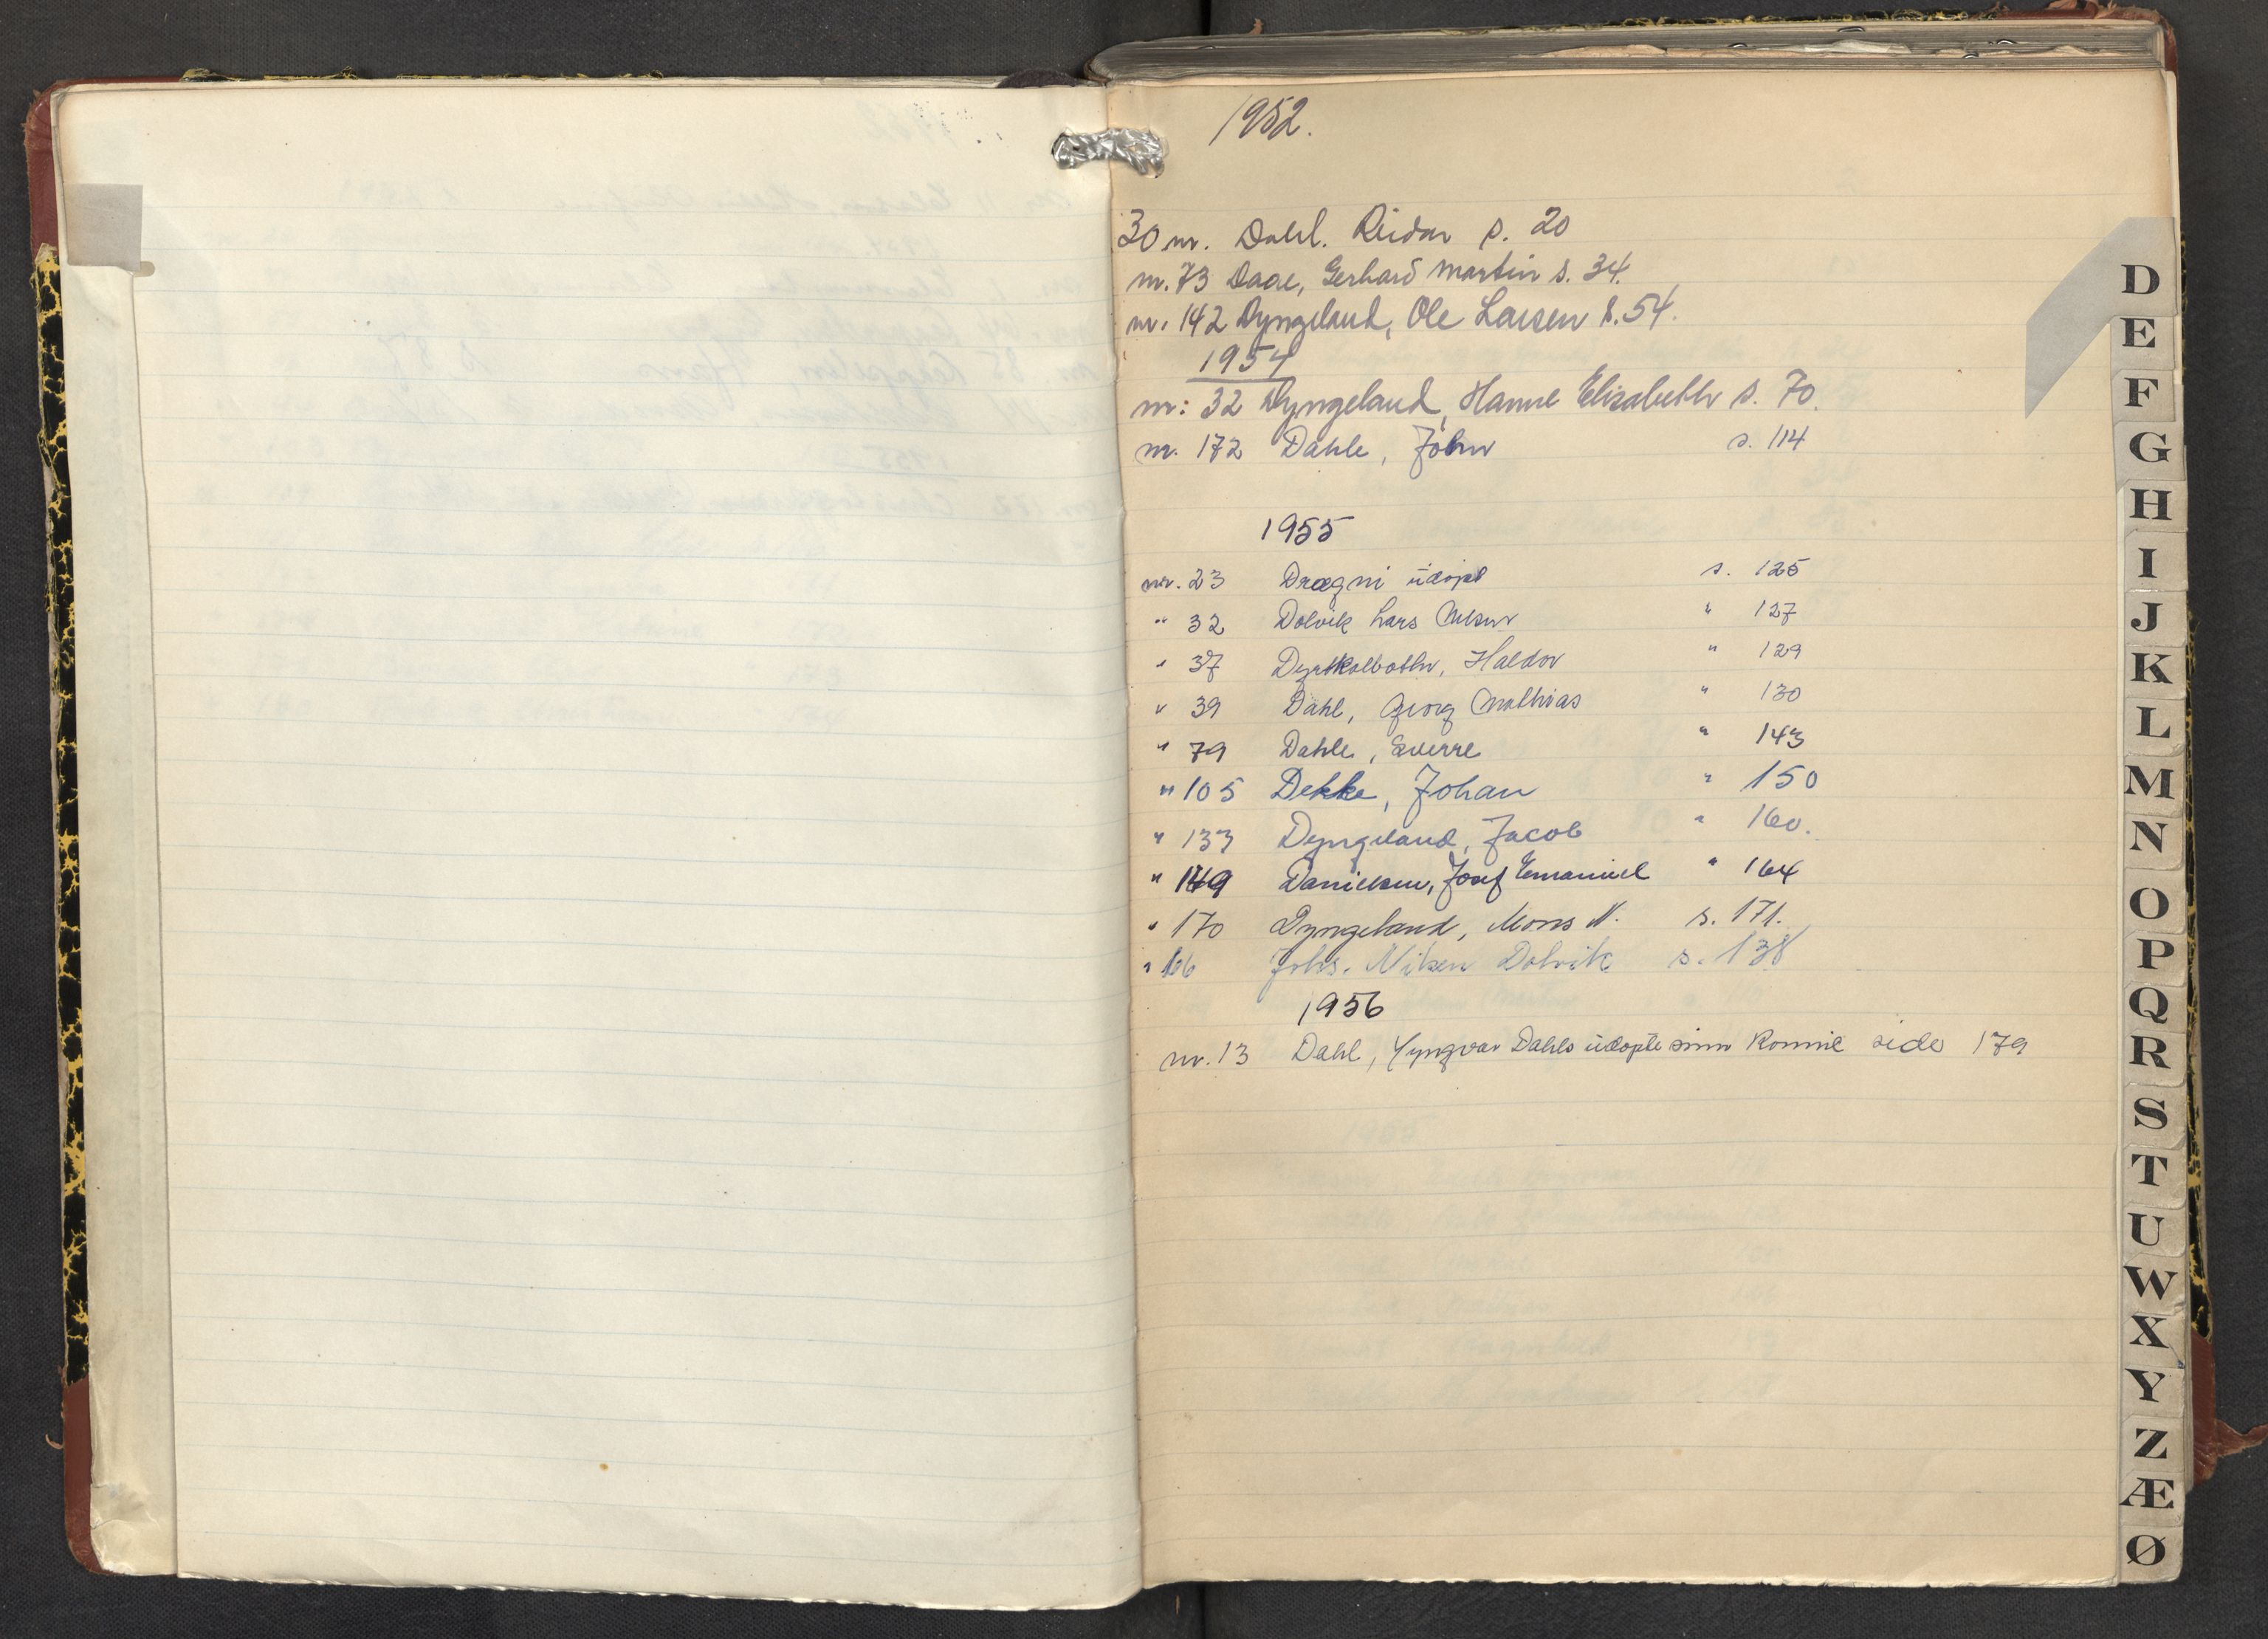 1952.
30 nr. Dahl. Reidar s. 20
nr. 73 Daae, Gerhard Martin s. 34.
nr. 142 Dyngeland, Ole Larsen s. 54.
1954
nr: 32 Dyngeland, Hanne Elisabeth s. 70.
nr. 172 Dahle, John s. 114
1955
nr. 23 Drægni udøpt s. 125
" 32 Dolvik Lars Nilsen " 127
" 37 Dyrkolbotn, Haldor " 129
" 39 Dahl, Georg Mathias " 130
" 79 Dahle, Sverre " 143
" 105 Dekke, Johan " 150
" 133 Dyngeland, Jacob " 160.
" 149 Danielsen, Josef Emanuel " 164
" 170 Dyngeland, Mons N. s. 171.
" 66 Johs. Nilsen Dolvik s. 138
1956
nr. 13 Dahl, Yyngvar Dahls udøpte sønn Ronnie side 179
D
E
F
G
H
I
J
K
L
M
N
O
P
Q
R
S
T
U
W
X
Y
Z
Æ
Ø